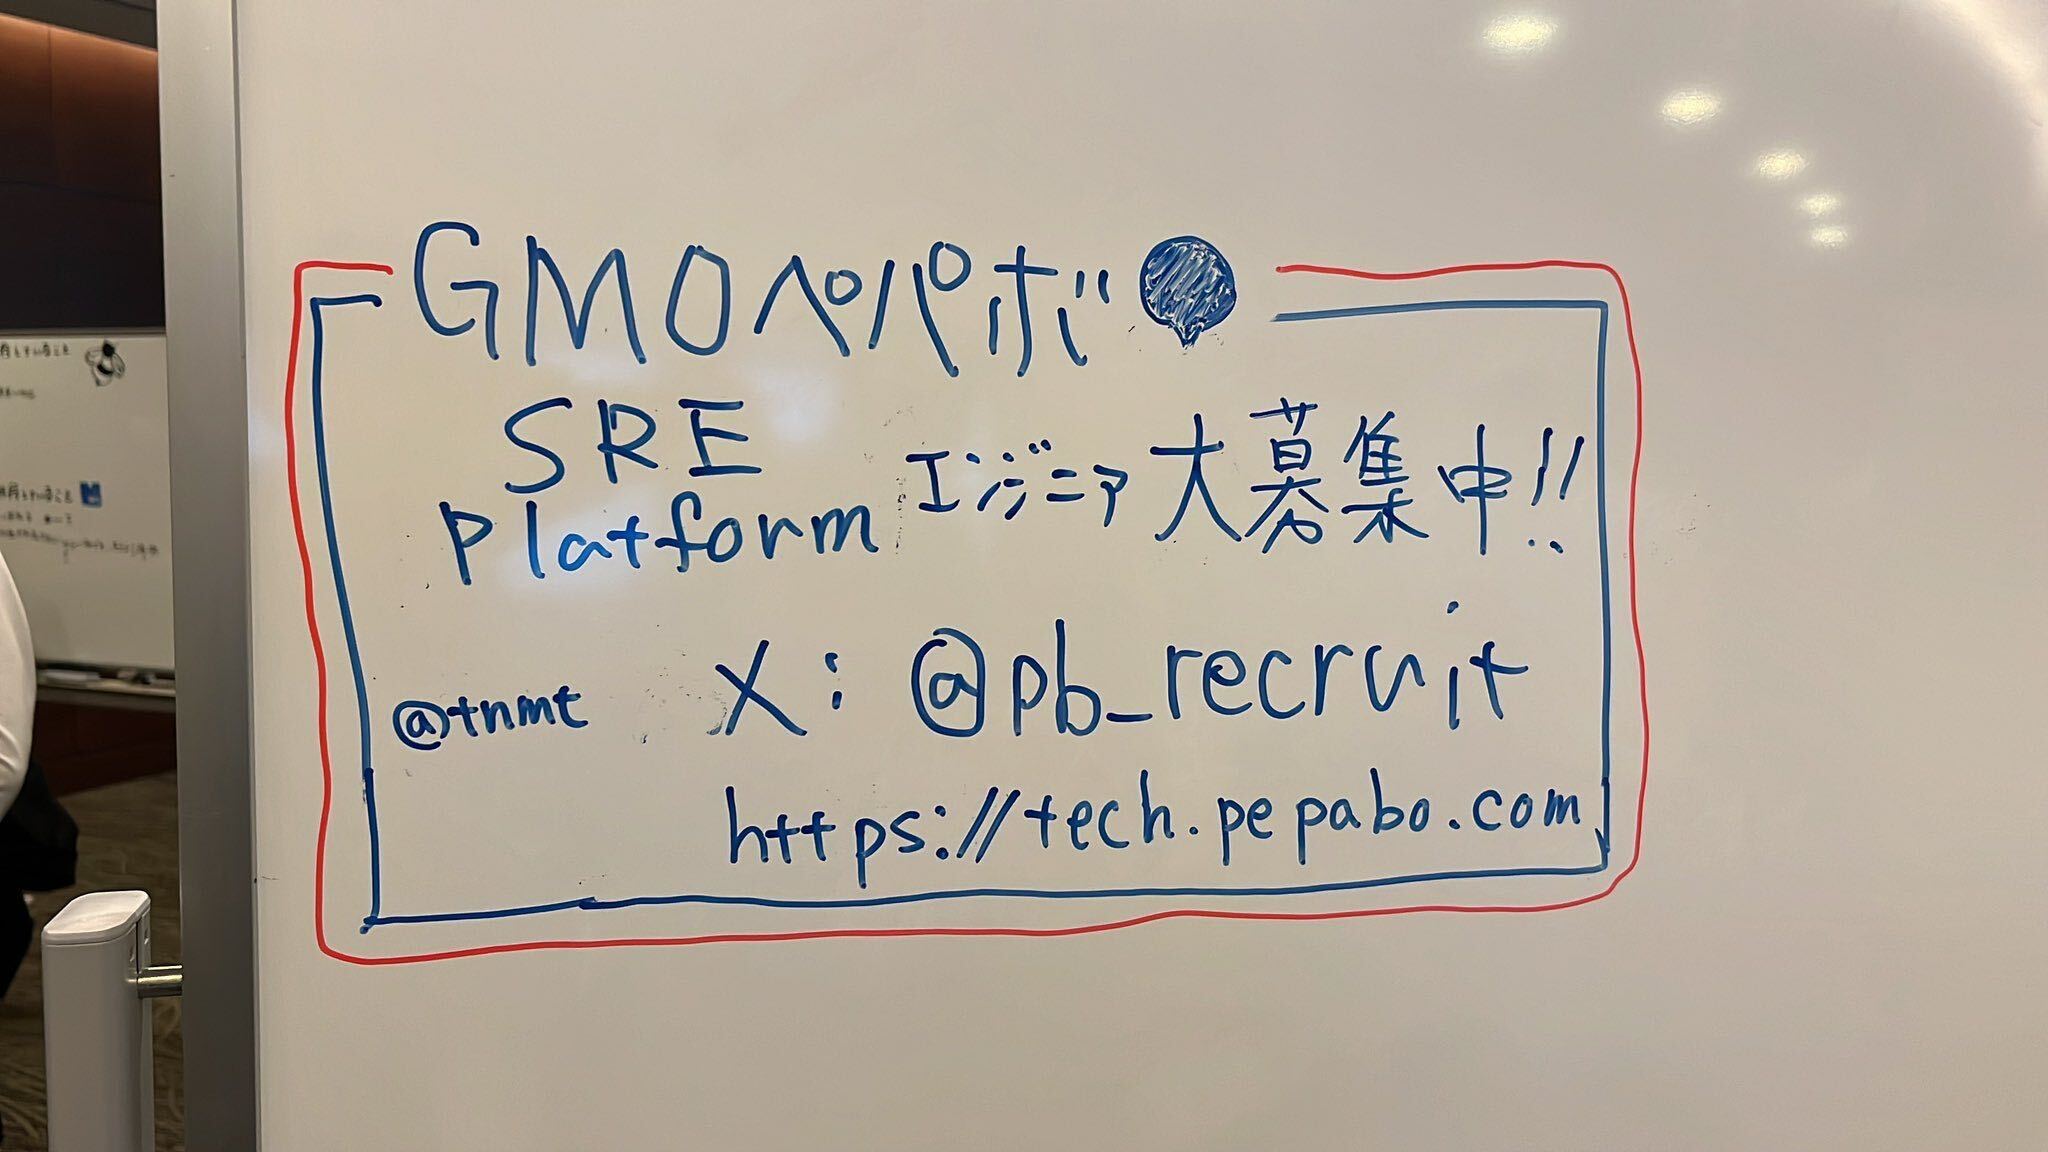 GMOペパボ
SRE
Platform
エンジニア 大募集中!!
@tnmt
X: @pb_recruit
https://tech.pepabo.com